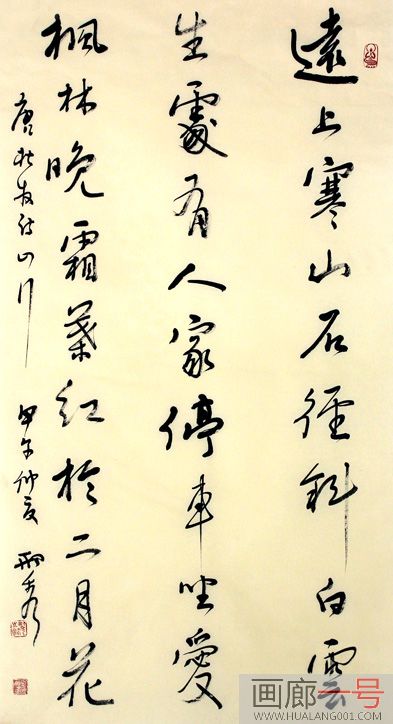 遠上寒山石徑斜白雲
生處有人家停車坐愛
楓林晚霜葉紅於二月花
唐杜牧詩山行 甲午仲夏
画廊一号
WWW.HUALANG001.COM